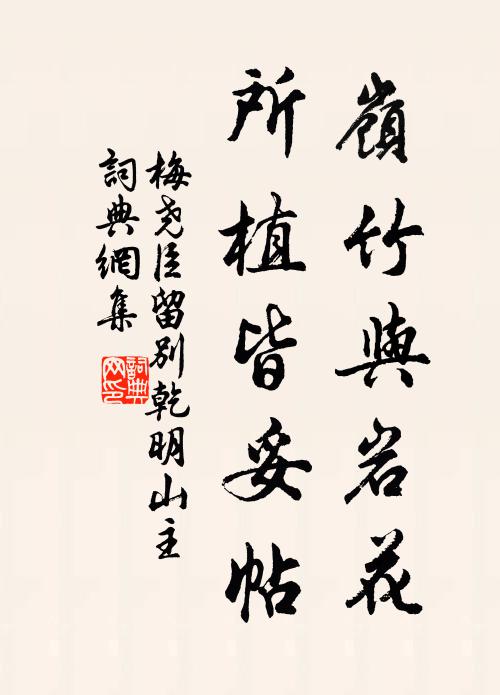 嶺竹與岩花
所植皆妥帖
梅尧臣留别乾明山主
詞典網集
詞典
网印